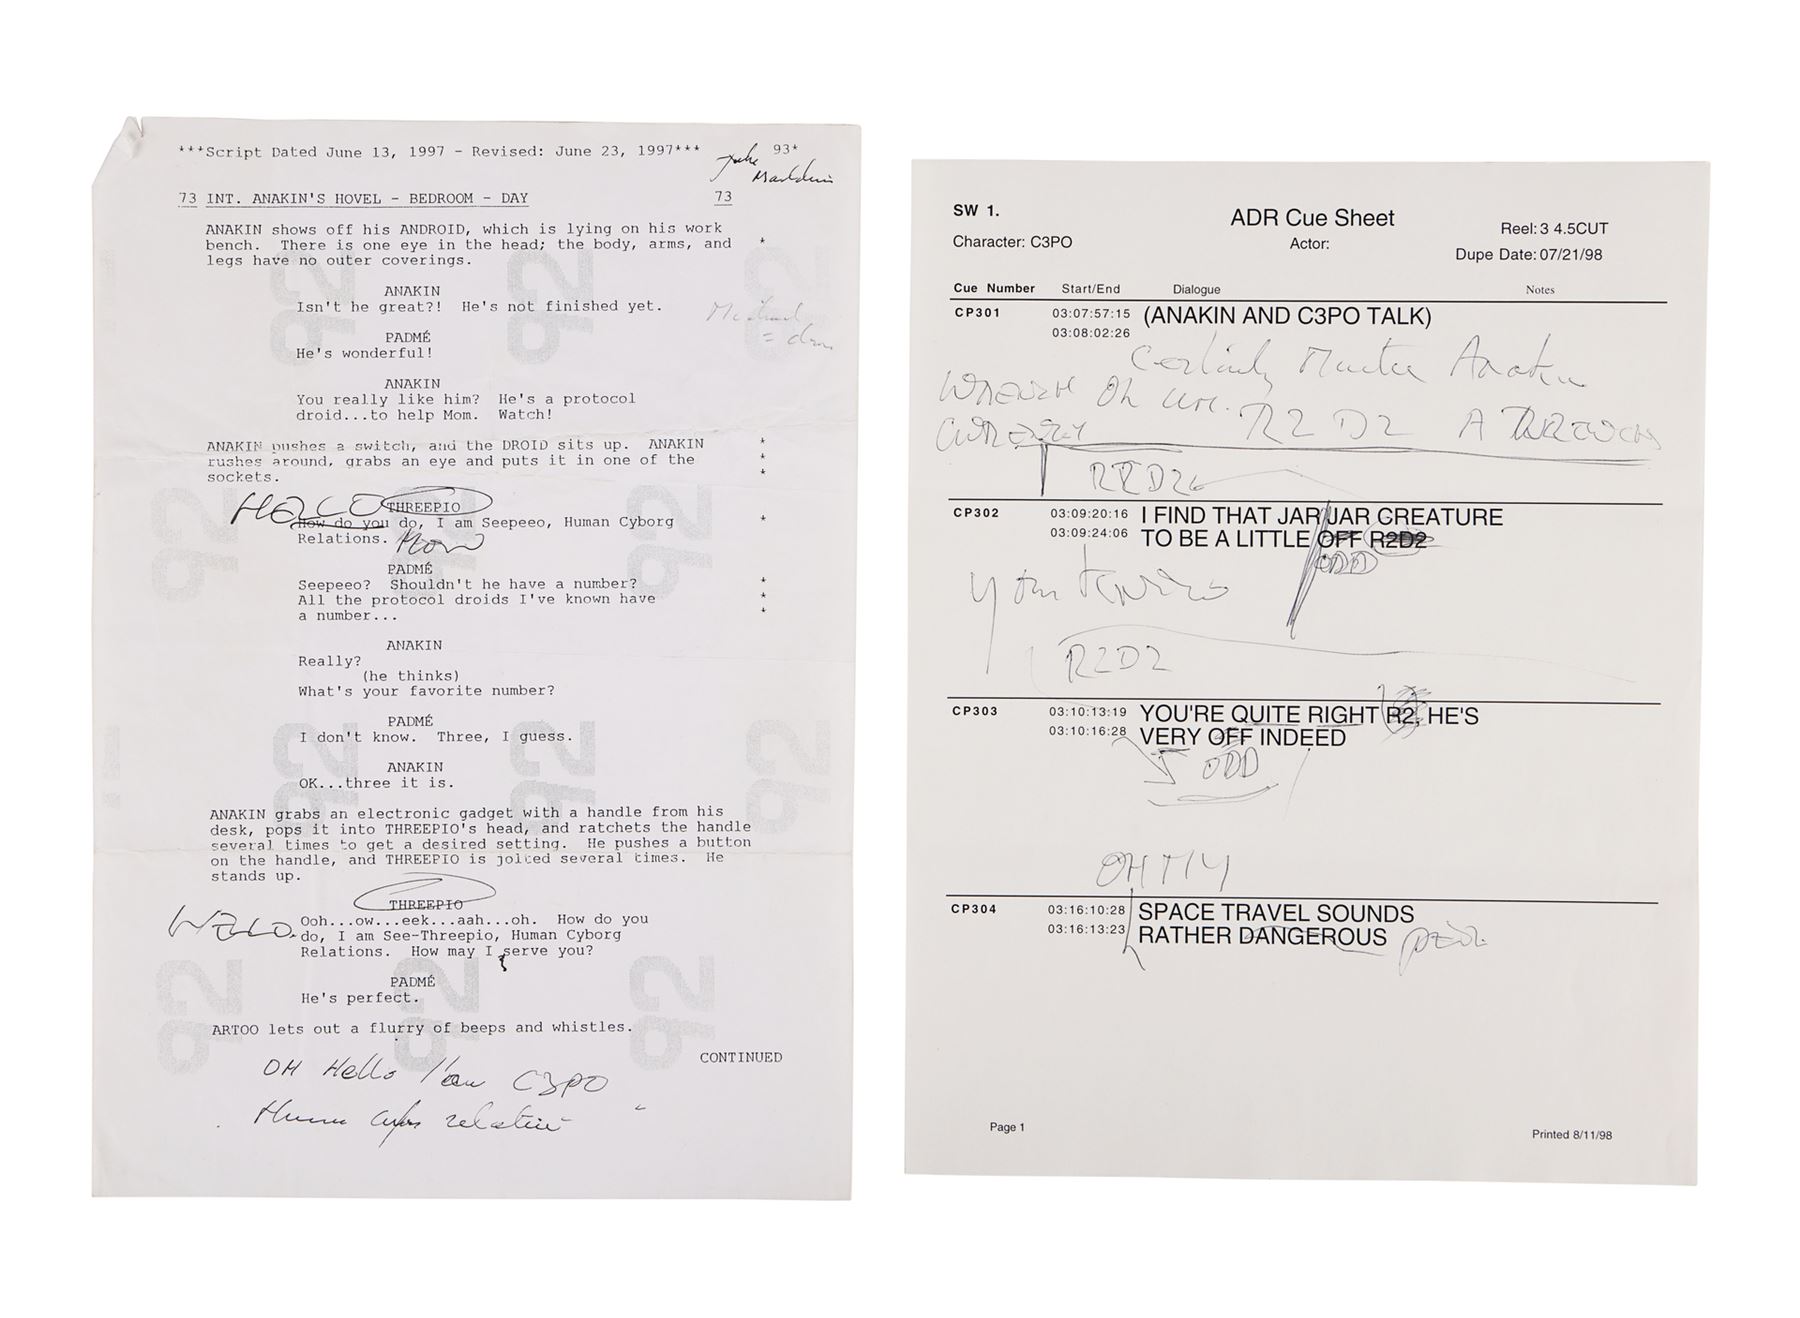 ***Script Dated June 13, 1997 - Revised: June 23, 1997*** 93*
73 INT. ANAKIN'S HOVEL - BEDROOM - DAY 73
ANAKIN shows off his ANDROID, which is lying on his work
bench. There is one eye in the head; the body, arms, and *
legs have no outer coverings.
ANAKIN
Isn't he great?! He's not finished yet.
Michael
PADMÉ
He's wonderful!
ANAKIN
You really like him? He's a protocol
droid...to help Mom. Watch!
ANAKIN pushes a switch, and the DROID sits up. ANAKIN *
rushes around, grabs an eye and puts it in one of the *
sockets. *
HELLO THREEPIO
How do you do, I am Seepeeo, Human Cyborg *
Relations. How
PADMÉ
Seepeeo? Shouldn't he have a number? *
All the protocol droids I've known have *
a number... *
ANAKIN
Really?
(he thinks)
What's your favorite number?
PADMÉ
I don't know. Three, I guess.
ANAKIN
OK...three it is.
ANAKIN grabs an electronic gadget with a handle from his
desk, pops it into THREEPIO's head, and ratchets the handle
several times to get a desired setting. He pushes a button
on the handle, and THREEPIO is jolted several times. He
stands up.
THREEPIO
Ooh...ow...eek...aah...oh. How do you
do, I am See-Threepio, Human Cyborg
Relations. How may I serve you?
PADMÉ
He's perfect.
ARTOO lets out a flurry of beeps and whistles.
CONTINUED
OH Hello I am C3PO
Human
92
SW 1.
ADR Cue Sheet
Character: C3PO
Actor:
Reel: 3 4.5CUT
Dupe Date: 07/21/98
Cue Number Start/End Dialogue Notes
CP301 03:07:57:15 (ANAKIN AND C3PO TALK)
03:08:02:26
Certainly Master Anakin
R2 D2 A
CP302 03:09:20:16 I FIND THAT JAR JAR CREATURE
03:09:24:06 TO BE A LITTLE OFF R2D2
ODD
R2D2
CP303 03:10:13:19 YOU'RE QUITE RIGHT R2, HE'S
03:10:16:28 VERY OFF INDEED
ODD
OH MY
CP304 03:16:10:28 SPACE TRAVEL SOUNDS
03:16:13:23 RATHER DANGEROUS
Page 1
Printed 8/11/98